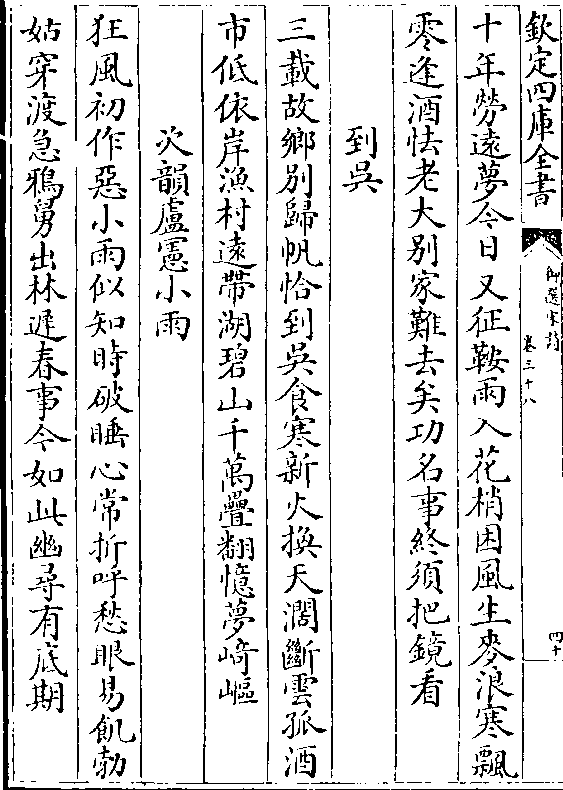 欽定四庫全書
御選宋詩
卷三十八
四十
十年勞遠夢今日又征鞍雨入花梢困風生麥浪寒飄
零逢酒怯老大别家難去矣功名事終須把鏡看
到吳
三載故鄉别歸帆恰到吳食寒新火換天濶斷雲孤酒
市低依岸漁村遠帶湖碧山千萬疊翻憶夢崎嶇
次韻盧憲小雨
狂風初作惡小雨似知時破睡心常折呼愁眼易飢勃
姑穿渡急鴉舅出林遲春事今如此幽尋有底期